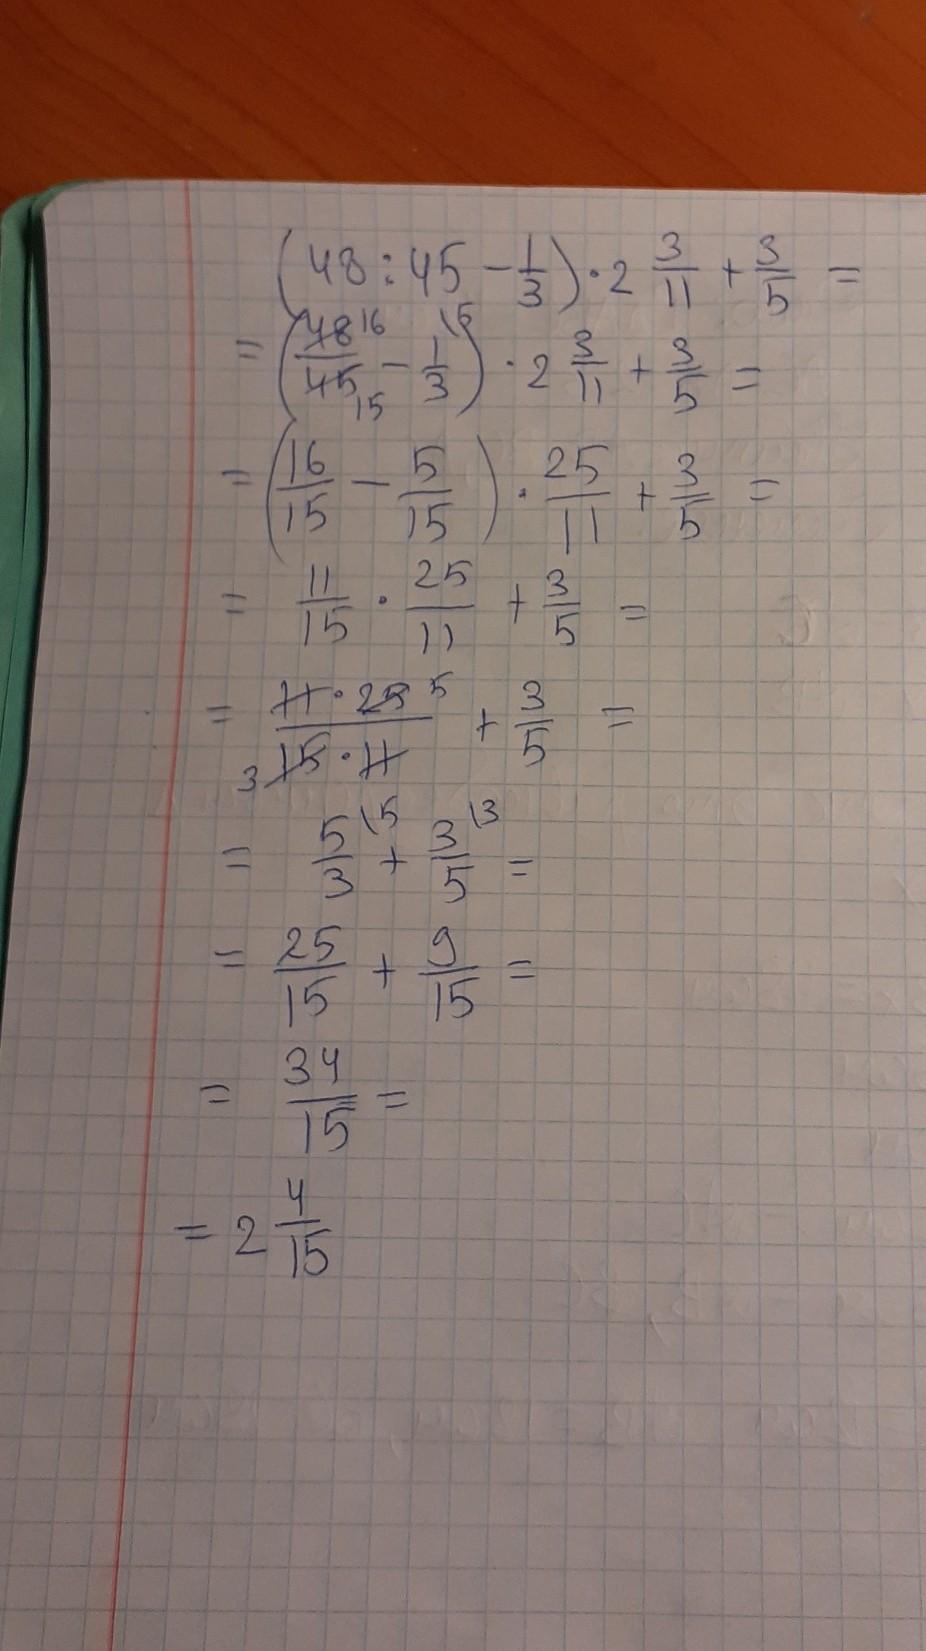 (48:45 - 1/3) · 2 3/11 + 3/5 =
= (48 16/45 15 - 1/3 \5) · 2 3/11 + 3/5 =
= (16/15 - 5/15) · 25/11 + 3/5 =
= 11/15 · 25/11 + 3/5 =
= 11 · 25 5/3 15 · 11 + 3/5 =
= 5/3 \5 + 3/5 \3 =
= 25/15 + 9/15 =
= 34/15 =
= 2 4/15